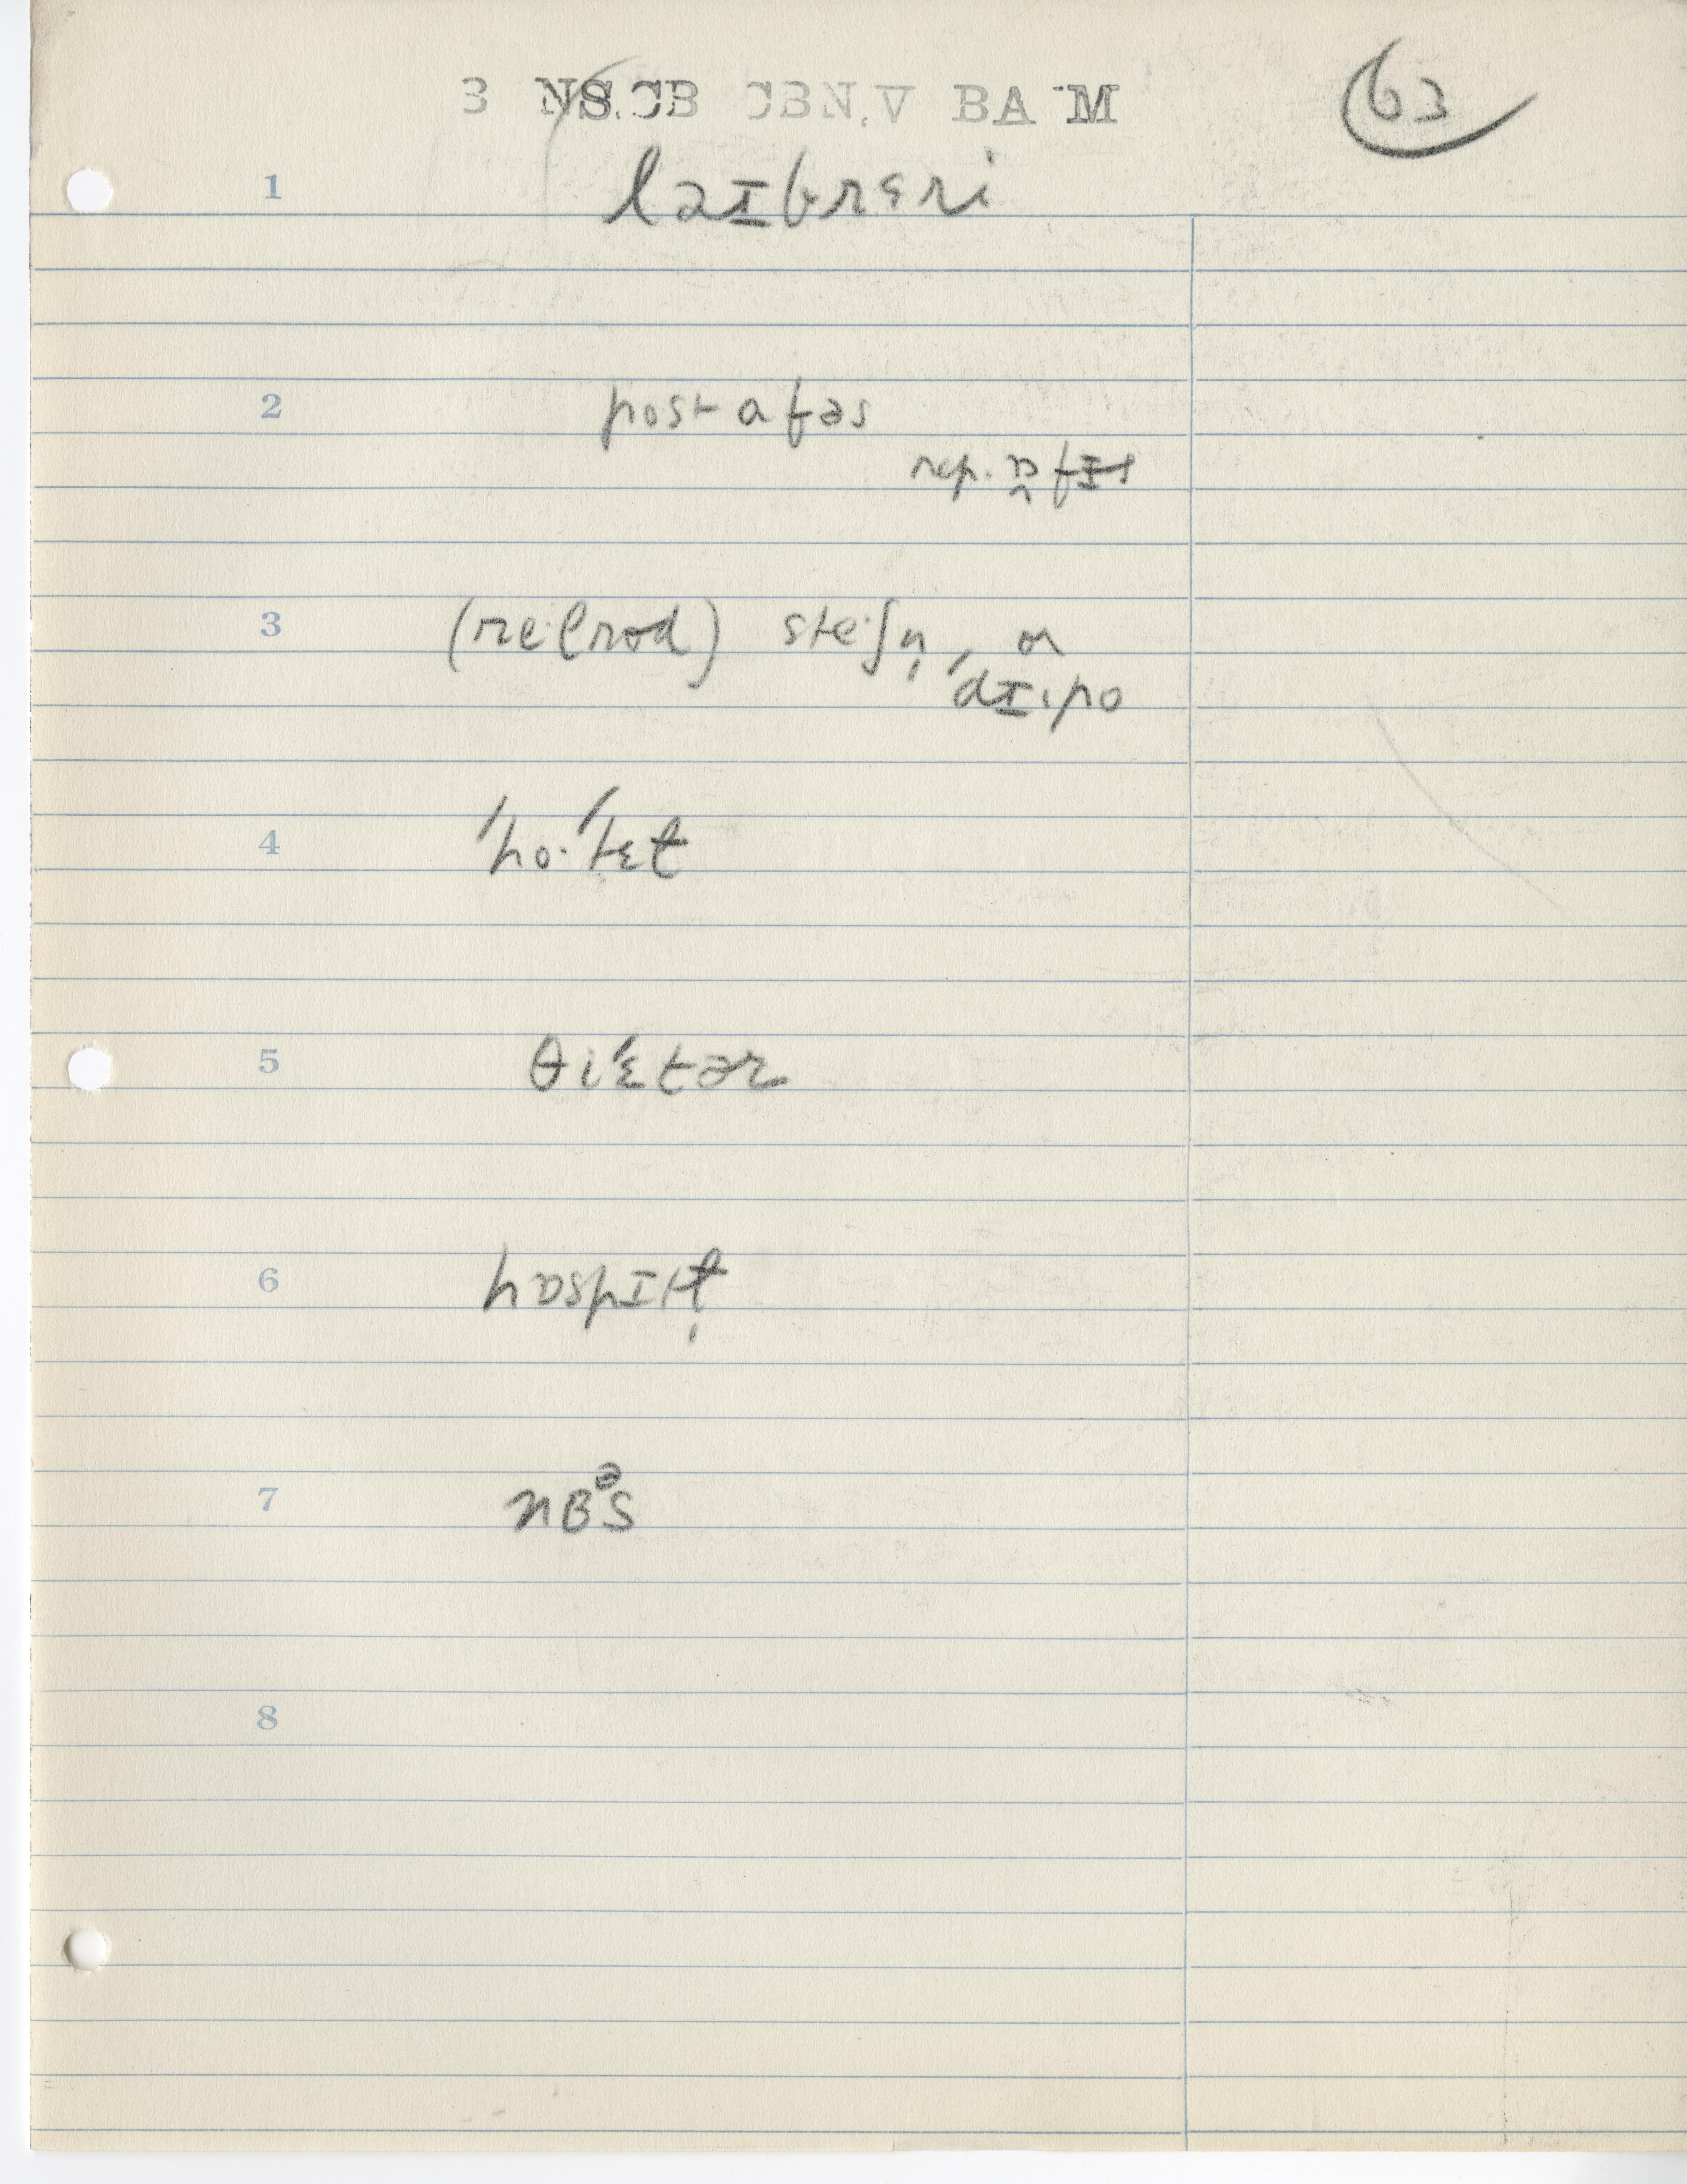 3 NS.CB CBN.V BA M
63
1 laɪbrɛri
2 post afəs
rep. ɒfɪs
3 (re·lrod) ste·ʃn̩, or
'dɪ·po
4 'ho·'tɛɫ
5 θi'ɛtər
6 hɒspɪtɫ̩
7 nɞᵊs
8